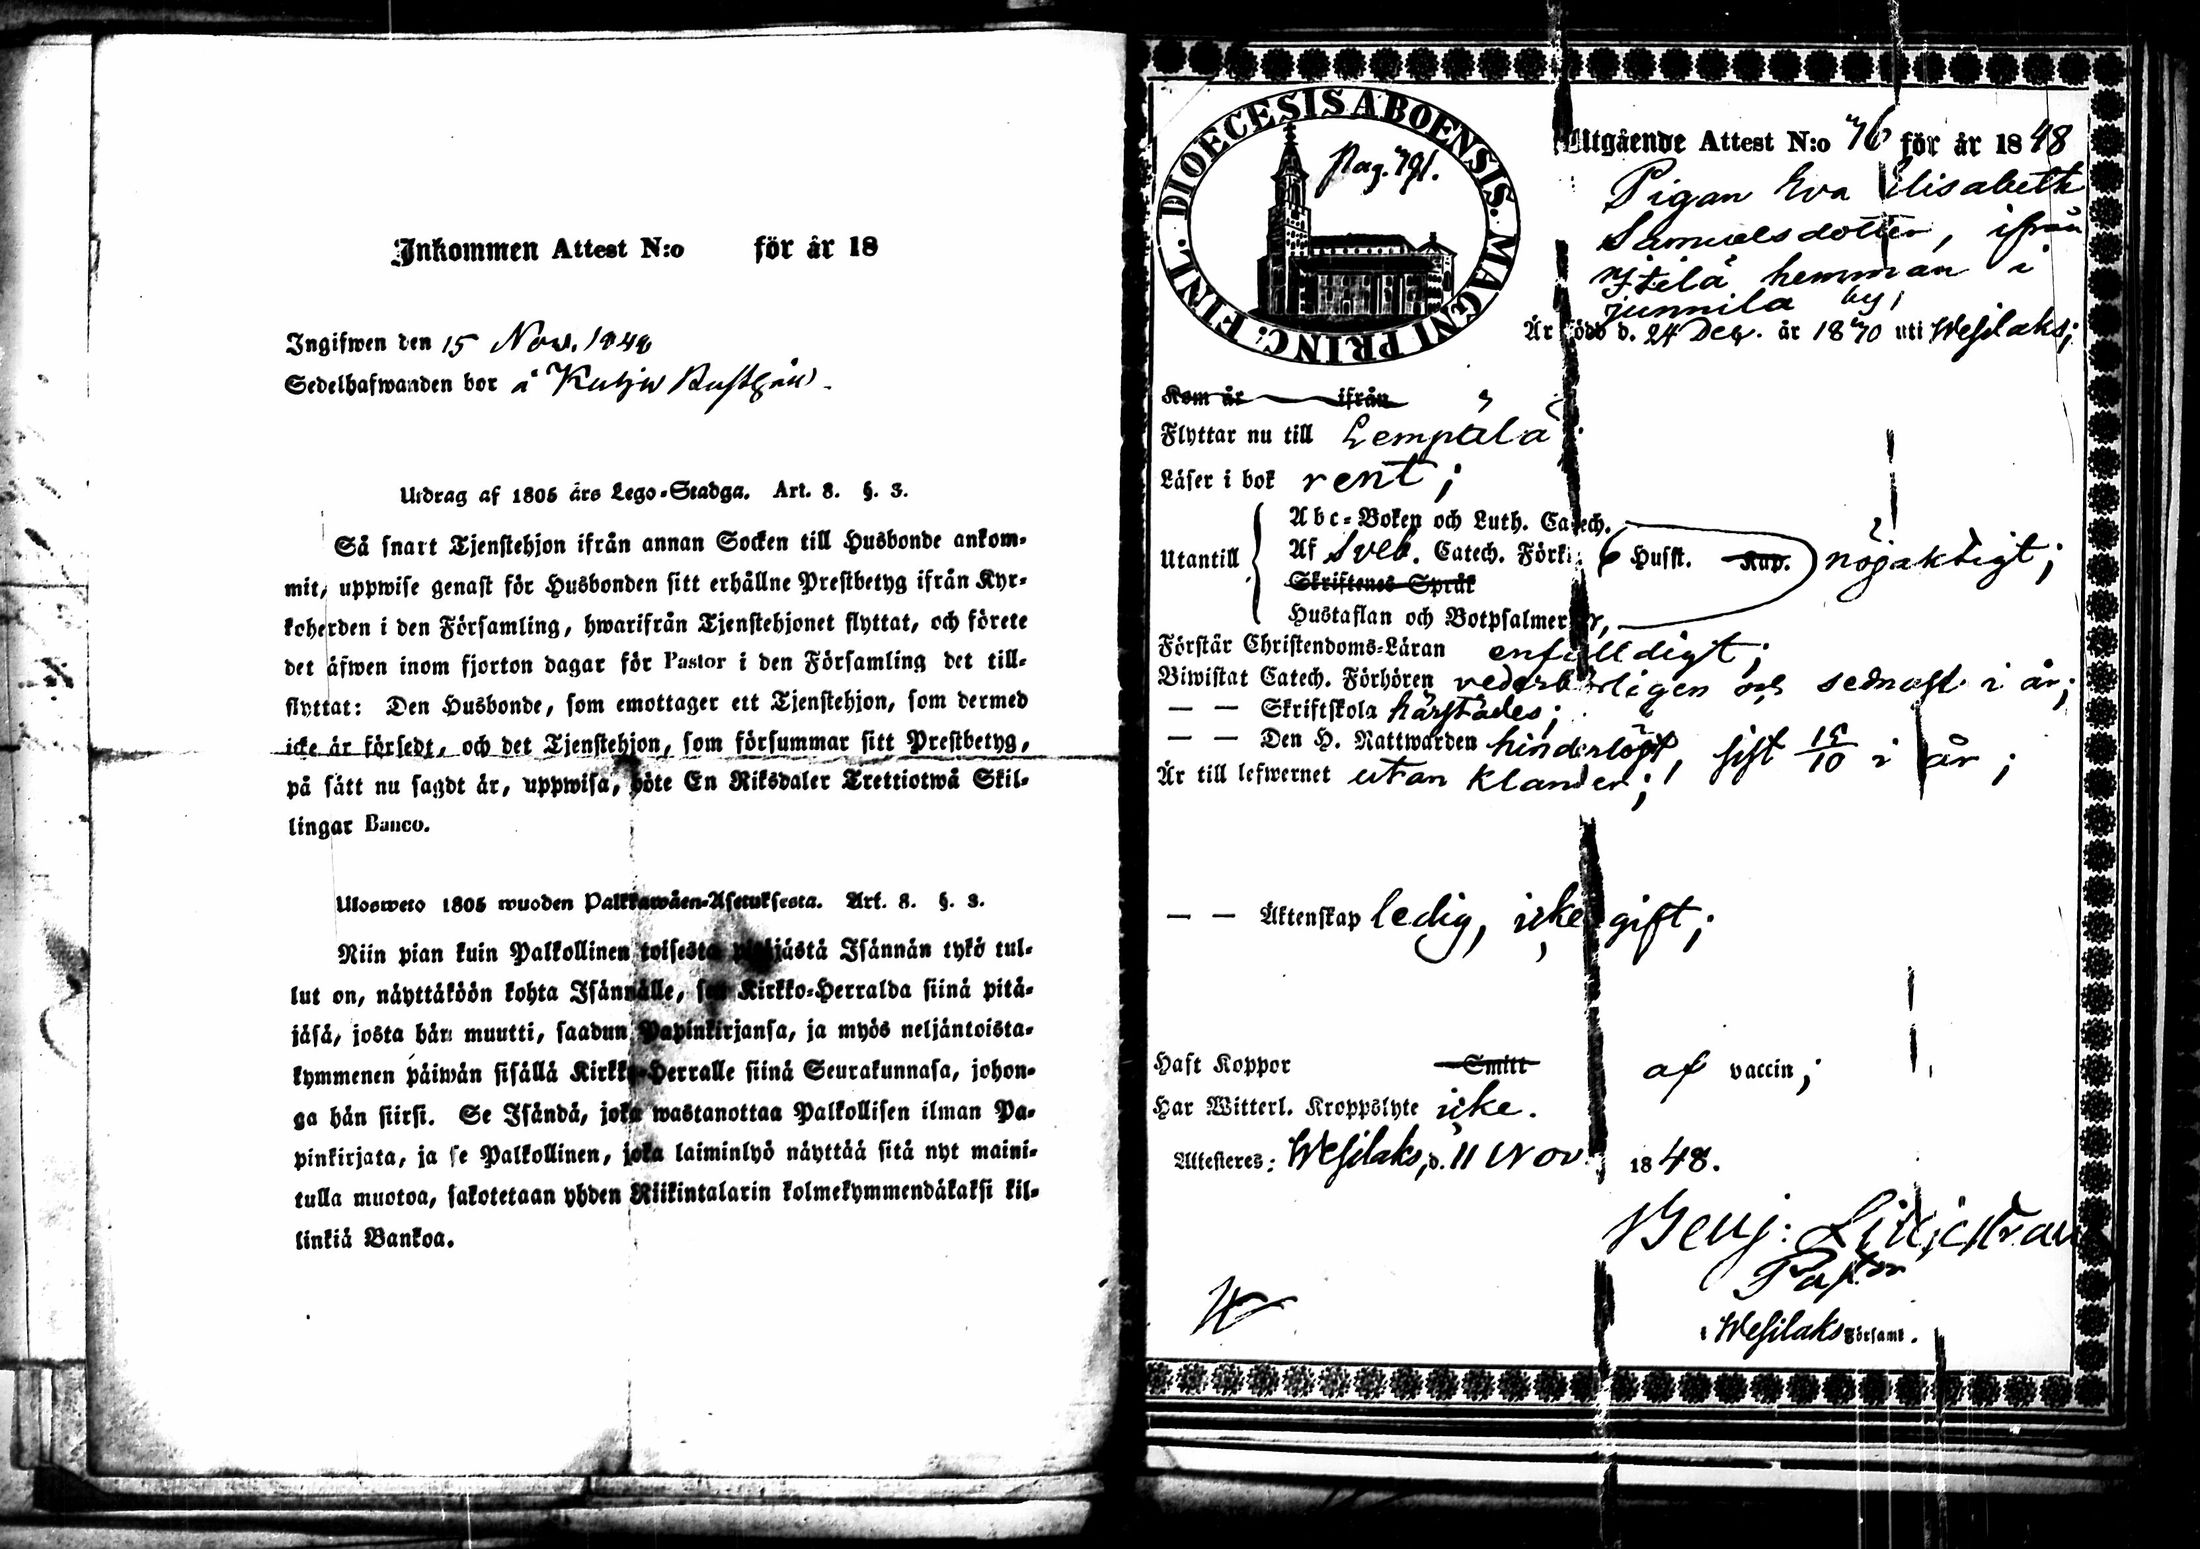 Inkommen Attest N:o för år 18
Ingifwen den 15 Nov. 1848
Sedelhafwanden bor å
Utdrag af 1805 års Lego-Stadga. Art. 8. §. 3.
Så snart Tjenstehjon ifrån annan Socken till Husbonde ankom-
mit, uppwise genast för Husbonden sitt erhållne Prestbetyg ifrån Kyr-
koherden i den Församling, hwarifrån Tjenstehjonet flyttat, och förete
det äfwen inom fjorton dagar för Pastor i den Församling det till-
flyttat: Den Husbonde, som emottager ett Tjenstehjon, som dermed
icke är försedt, och det Tjenstehjon, som försummar sitt Prestbetyg,
på sätt nu sagdt är, uppwisa, böte En Riksdaler Trettiotwå Skil-
lingar Banco.
Ulosweto 1805 wuoden Palkkawäen-Asetuksesta. Art. 8. §. 3.
Niin pian kuin Palkollinen toisesta pitäjästä Isännän tykö tul-
lut on, näyttäköön kohta Isännälle, sen Kirkko-Herralda siinä pitä-
jäsä, josta hän muutti, saadun Papinkirjansa, ja myös neljäntoista-
kymmenen päiwän sisällä Kirkko-Herralle siinä Seurakunnasa, johon-
ga hän siirsi. Se Isändä, joka wastanottaa Palkollisen ilman Pa-
pinkirjata, ja se Palkollinen, joka laiminlyö näyttää sitä nyt maini-
tulla muotoa, sakotetaan yhden Riikintalarin kolmekymmendäkaksi kil-
linkiä Bankoa.
DIOECESIS ABOENSIS. MAGNI PRINC. FINL.
Pag. 791.
Utgående Attest N:o 76 för år 1848
Pigan Eva Elisabeth
Samuelsdotter, ifrån
hemman i
Junnila by,
Är född d. 24 Dec. år 18 uti Wesilaks;
Kom år ifrån
Flyttar nu till Lempälä.
Läser i bok rent;
Utantill
Abc-Boken och Luth. Catech.
Af Sveb. Catech. Förkl. 6 Husft. Kap. nöjaktigt;
Skriftenes Språk
Hustaflan och Botpsalmerne,
Förstår Christendoms-Läran enfalldigt;
Biwistat Catech. Förhören vederbörligen och sednast i år;
— — Skriftskola härstädes;
— — Den H. Nattwarden hinderlöst, sist 15/10 i år;
Är till lefwernet utan klander;
— — Äktenskap ledig, icke gift;
Haft Koppor Smitt af vaccin;
Har Witterl. Kroppslyte icke.
Attesteres: Wesilaks, d. 11 Nov. 1848.
Benj: Liliestrand
Pastor
i Wesilaks Församl.